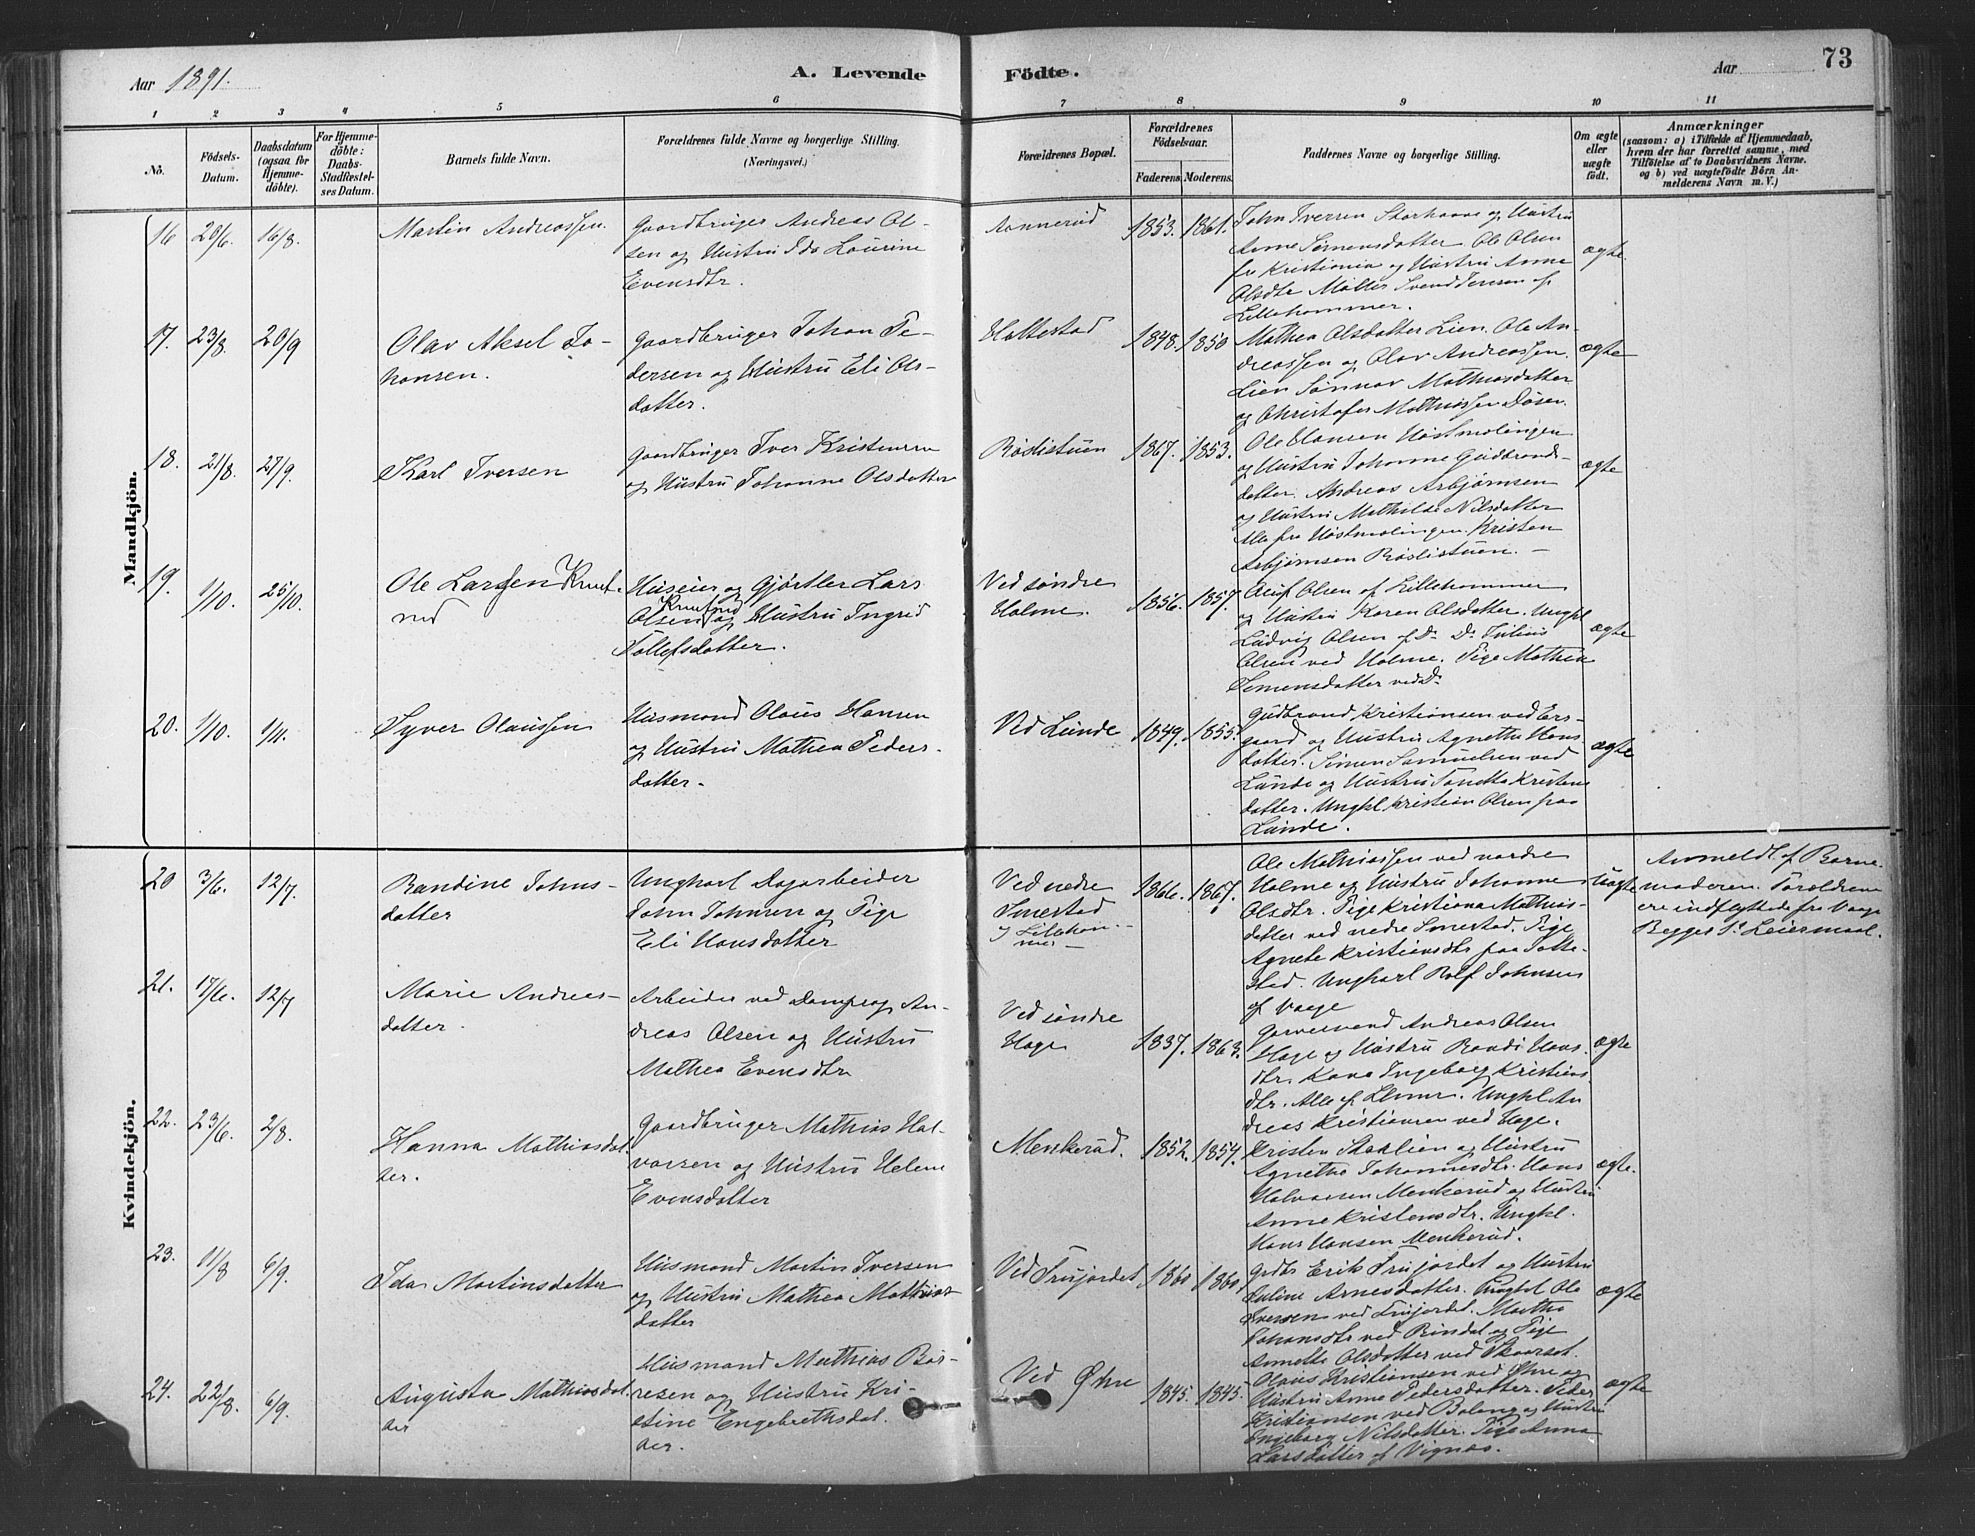 Aar 1891.
A. Levende Födte.
Aar
73
1 2 3 4 5 6 7 8 9 10 11
No.
Födsels-Datum.
Daabsdatum (ogsaa for Hjemme-döbte).
For Hjemme-döbte: Daabs-Stadfæstel-ses Datum.
Barnets fulde Navn.
Forældrenes fulde Navne og borgerlige Stilling. (Næringsvei.)
Forældrenes Bopæl.
Forældrenes Födselsaar.
Faderens. Moderens.
Faddernes Navne og borgerlige Stilling.
Om ægte eller uægte födt.
Anmærkninger
(saasom: a) i Tilfælde af Hjemmedaab,
hvem der har forrettet samme, med
Tilföielse af to Daabsvidners Navne.
og b) ved uægtefödte Börn An-
melderens Navn m. V.)
Mandkjön.
16 20/6. 16/8.
Martin Andreassen.
Gaardbruger Andreas Ol-
sen og Hustru Ida Lourine
Evensdtr.
Aannerud
1853. 1861.
John Iversen Storhaave og Hustru
Anne Simensdatter. Ole Olsen
fra Kristiania og Hustru Anne
Olsdtr Møller Svend Jensen af
Lillehammer.
ægte.
17. 23/8. 20/9
Olav Aksel Jo-
hansen.
Gaardbruger Johan Pe-
dersen og Hustru Eli Ols-
datter.
Hattestad
1848. 1850
Mathea Olsdatter Lien. Ole An-
dreassen og Olav Andreassen
Lien Sønnav Mathiasdatter
og Christofer Mathiassen Døsen.
ægte
18. 21/8. 27/9.
Karl Iversen
Gaardbruger Iver Kristensen
og Hustru Johanne Olsdatter
Röslistuen
1867. 1853.
Ole Hansen Høstmølingen
og Hustru Johanne Gudbrands-
datter. Andreas Arbjørnsen
og Hustru Mathilde Nilsdatter
Alle fra Høstmølingen. Kristen
Arbjørnsen Röslistuen. –
ægte
19. 1/10. 25/10.
Ole Larssen Knuf-
rud
Huseier og Gjørtler Lars
Olsen Knufrud og Hustru Ingrid
Tollefsdatter.
Ved søndre
Holme.
1856. 1857.
Olsen af Lillehammer
og Hustru Karen Olsdatter. Ungkl
Ludvig Olsen af Do. Do. Julius
Olsen ved Holme. Pige Mathea
Simensdatter ved Do
ægte
20. 1/10. 1/11.
Syver Olaussen
Husmand Olaus Hansen
og Hustru Mathea Peders-
datter.
Ved Lunde
1849. 1855.
Gudbrand Kristiansen ved Ers-
gaard og Hustru Agnethe Hans
datter. Simen Samuelsen ved
Lunde og Hustru Tonetta Kristens
datter. Ungkl. Kristian Olsen paa
Lunde.
ægte
Kvindekjön.
20 3/6. 12/7.
Randine Johns-
datter
Ungkarl Dagarbeider
John Johnsen og Pige
Eli Hansdatter
Ved nedre
Smestad
i Lillehammer –
1866. 1867.
Ole Mathiassen ved nordre
Holme og Hustru Johanne
Olsdtr. Pige Kristiana Mathias-
datter ved nedre Smestad. Pige
Agnete Kristiansdtr paa Jotte-
stad. Ungkarl Rolf Johnsen
af Vaage
uægte
Anmeldt af Barne-
moderen. Forældrene
ere indflyttede fra Vaage
Begges 1ste Leiermaal.
21. 17/6. 12/7
Marie Andreas-
datter.
Arbeider ved Dampsag An-
dreas Olsen og Hustru
Mathea Evensdtr
Ved søndre
Hage
1837. 1863.
Garversvend Andreas Olsen
Hage og Hustru Randi Hans-
dtr. Kona Ingeborg Kristians-
dtr. Alle af Ungkl An
dreas Kristiansen ved Hage.
ægte
22. 23/6. 2/8.
Hanna Mathiasdat-
ter.
Gaardbruger Mathias Hal-
vorsen og Hustru Helene
Evensdatter
Menkerud.
1852. 1854.
Kristen Staklien og Hustru
Agnethe Johannesdtr. Hans
Halvorsen Menkerud og Hustru
Anne Kristensdtr. Ungkl.
Hans Hansen Menkerud.
ægte.
23. 11/8 6/9.
Ida Martinsdatter
Husmand Martin Iversen
og Hustru Mathea Mathias-
datter
Ved Trujordet
1860 1860
Gdbr Erik Trujordet og Hustru
Arnesdatter. Ungkl Ole
Iversen ved Trujordet. Martha
Johansdtr ved Rindal og Pige
Annethe Olsdatter ved Skaarset.
ægte
24. 22/8. 6/9.
Augusta Mathiasdat-
ter
Husmand Mathias Bør-
resen og Hustru Kri-
stine Engebrethsdat-
ter.
Ved Øhre
1845. 1845.
Olaus Kristiansen ved Øhre og
Hustru Anne Pedersdatter. Peder
Kristiansen ved Baleng og Hustru
Engeborg Nilsdatter. Pige Anna
Larsdatter af Vignæs.
ægte